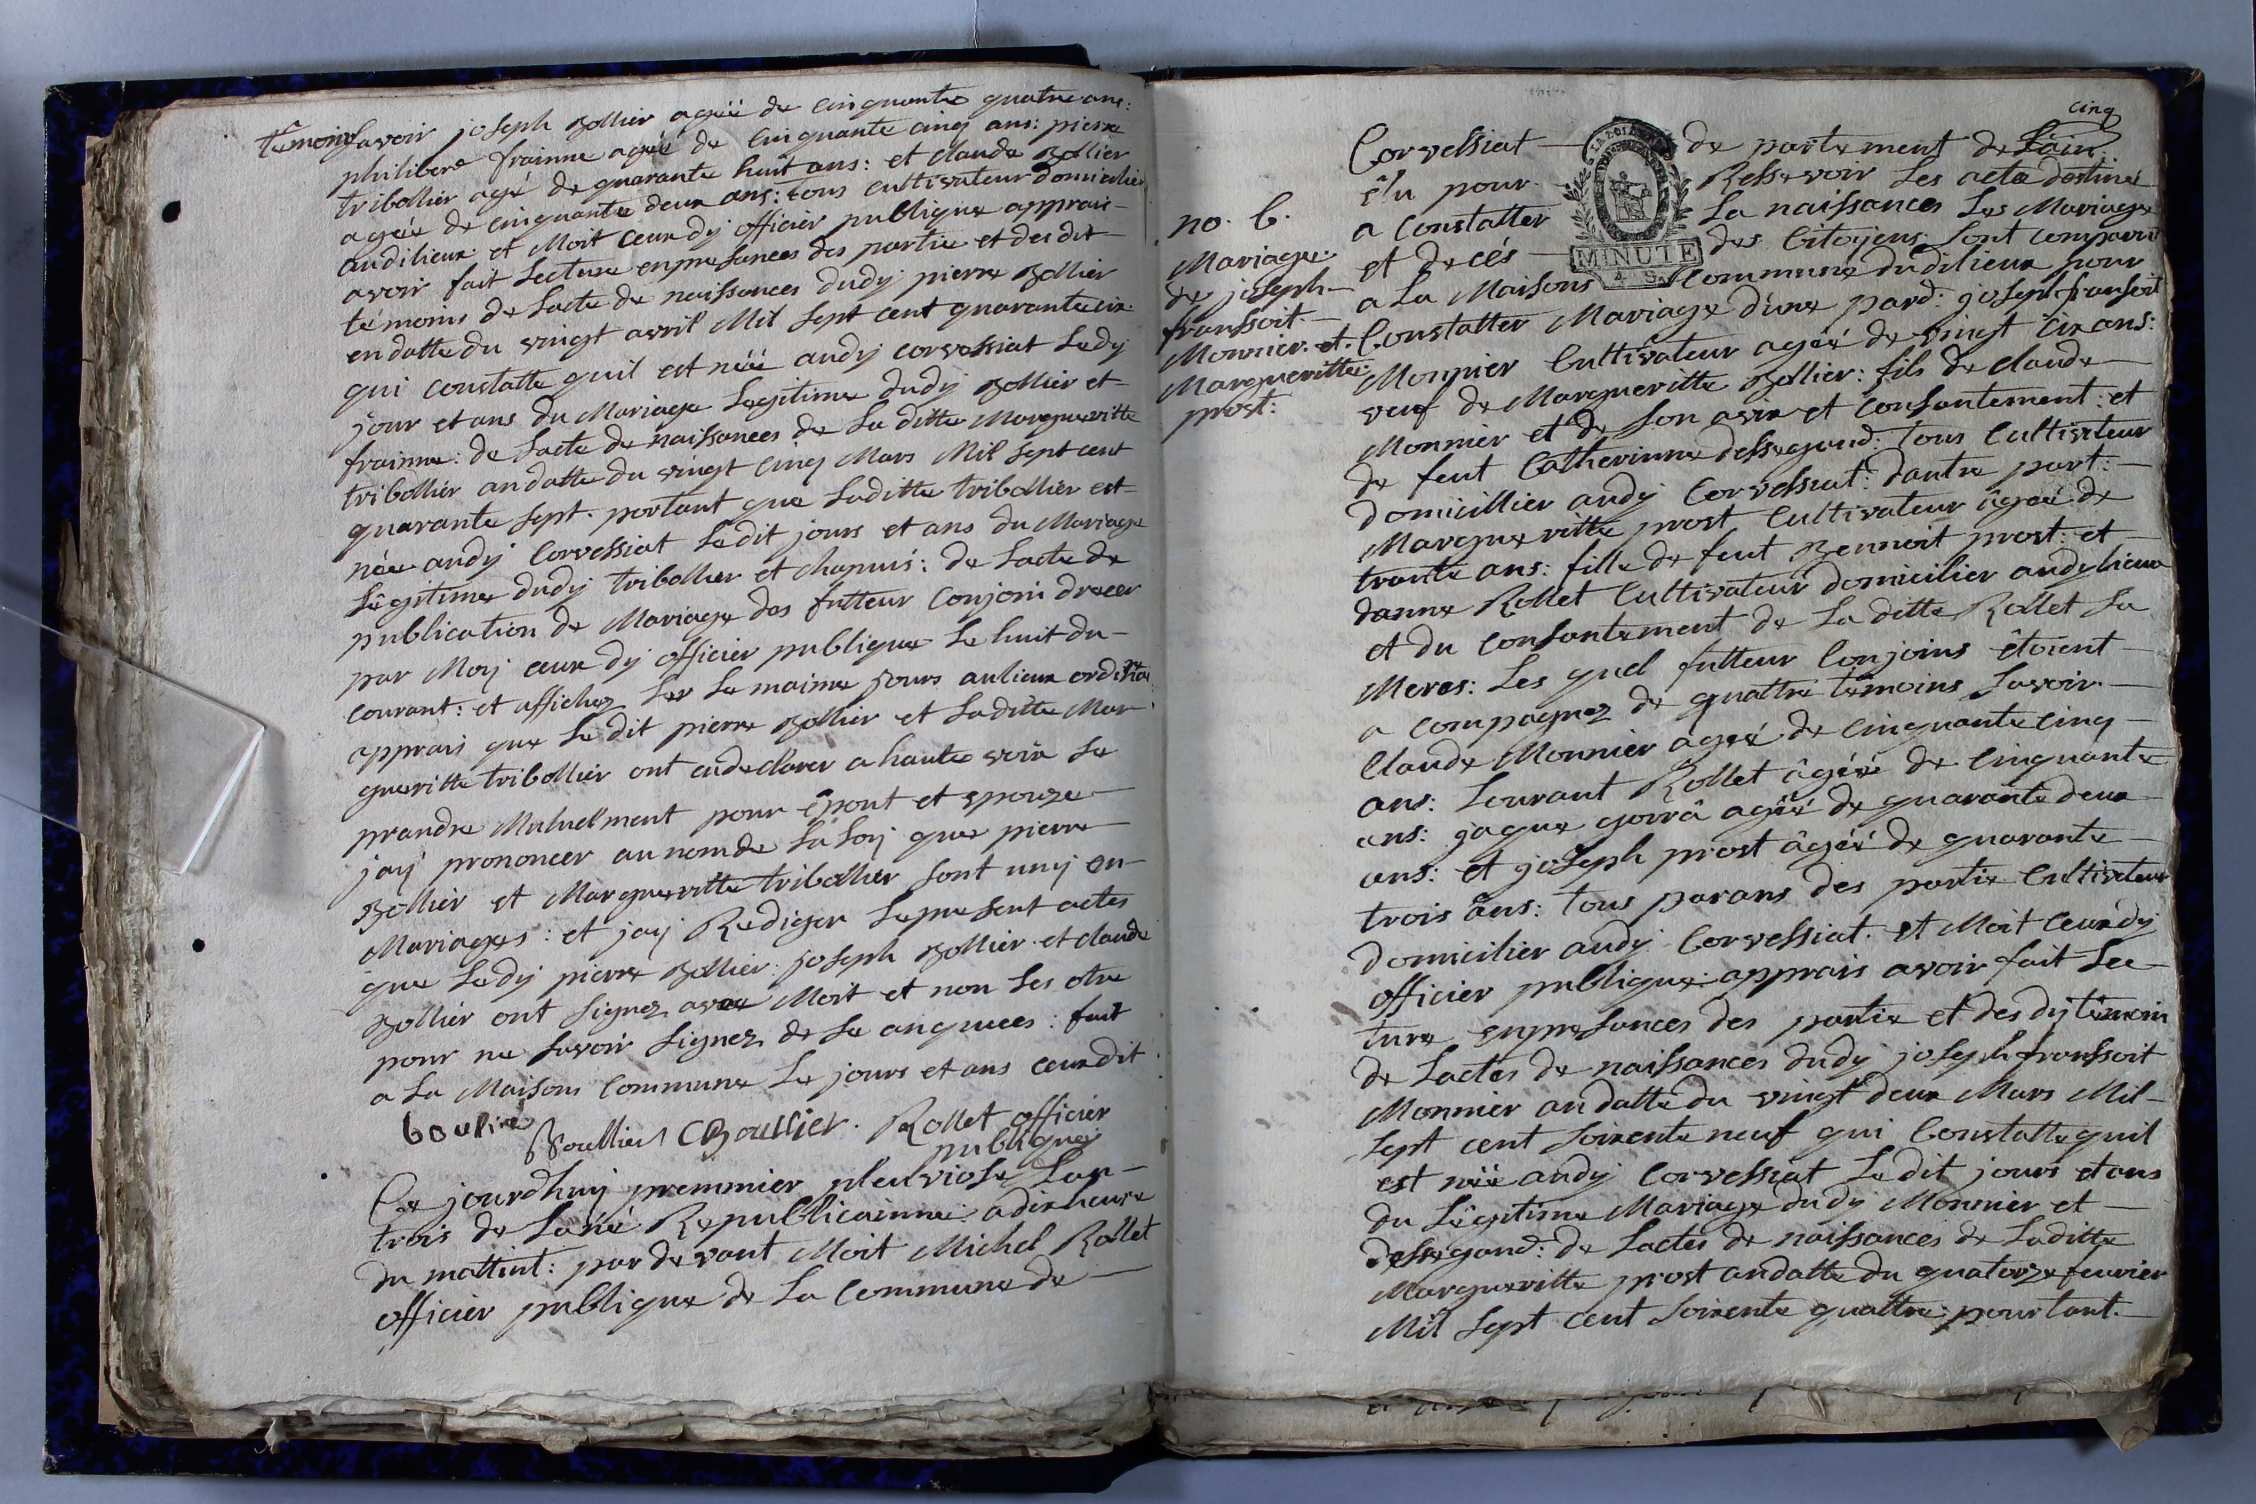 témoins savoir joseph Bollier ageé de cinquante quatre ans:
philibere frainne ageé de cinquante cinq ans: pierre
tribollier agé de quarante huit ans: et claude Bollier
ageé de cinquante deux ans: tous cultivateur domicilier
audilieux et Moit ceux dy officier publique apprais
avoir fait Lecture enpresances des partie et des dit
témoins de Lacte de naissances dudy pierre Bollier
endatte du vingt avril Mil Sept cent quarante six
qui constatte quil est néé audy corvessiat Ledy
jour et ans du Mariage Legitime dudy Bollier et
frainne: de Lacte de naissances de La ditte Margueritte
tribollier andatte du vingt cinq Mars Mil Sept cent
quarante Sept. portant que Laditte tribollier est
née audy Corvessiat Ledit jours et ans du Mariage
Légitime dudy tribollier et chapuis: de Lacte de
publication de Mariage des futteur Conjoin drecer
par Moy ceux dy officier publique Le huit du
courant: et affichez Ler Le maime jours aulieux ordinai
apprais que Le dit pierre Bollier et Laditte Mar
gueritte tribollier ont endeclarer a haute voix Se
prandre Mutuelment pour époux et epouze
jay prononcer aunomde La Loy que pierre
Bollier et Margueritte tribollier Sont uny en
Mariages: et jay Rediger Lepresent actes
que Ledy pierre Bollier: joseph Bollier et claude
Bollier ont Signez avec Moit et non Les otre
pour ne Savoir Signez de Se anquuees: fait
a La Maisons Commune Le jours et ans ceux dit
boulire Boullier CBoullier. Rollet officier
publique
Ce jourdhuy premmier pleuviose Lan
trois de Laneé Republicainne: a dix heure
du mattint: par devant Moit Michel Rollet
officier publique de La Commune de
cinq
Corvessiat de partement de Lain
élu pour Ressevoir Les acte destiné
a Constatter La naissances Les Mariage
et decés des Citoyens Sont comparut
a La Maisons Commune dudilieux pour
no. 6.
Mariage
de joseph
franssoit
Monnier et
Margueritte
prost:
Constatter Mariage d'une pard: joseph fransoit
Monnier Cultivateur ageé de vingt six ans:
veuf de Margueritte Bollier: fils de claude
Monnier et de Son avix et Consantement: et
de feut Catherinne dessegaud: tous Cultivateur
domicillier audy Corvessiat: dautre part:
Margueritte prost Cultivateur âgeé de
trante ans: fille de feut Bennoit prost: et
danne Rollet Cultivateur domicilier audylieux
et du Consantement de La ditte Rollet Sa
Meres: Les quel futteur Conjoins étoient
a compagnez de quattre témoins Savoir
Claude Monnier âgeé de cinquante cinq
ans: Lourant Rollet âgéé de Cinquante
ans: jaque gorrâ ageé de quarante deux
ans: et joseph prost âgéé de quarante
trois ans: tous parans des partie Cultivateur
domicilier audy Corvessiat. et Moit Ceux dy
officier publique: apprais avoir fait Lec
ture enpresances des partie et des dy témoin
de Lactes de naissances dudy joseph franssoit
Monnier andatte du vingt deux Mars Mil
Sept cent Soixente neuf qui Constatte quil
est néé audy Corvessiat Ledit jours et ans
du Légitime Mariage dudy Monnier et
dessegaud: de Lactes de naissances de Laditte
Margueritte prost andatte du quatorze feuvrier
Mil Sept cent Soixente quattre: pourtant.
MINUTE